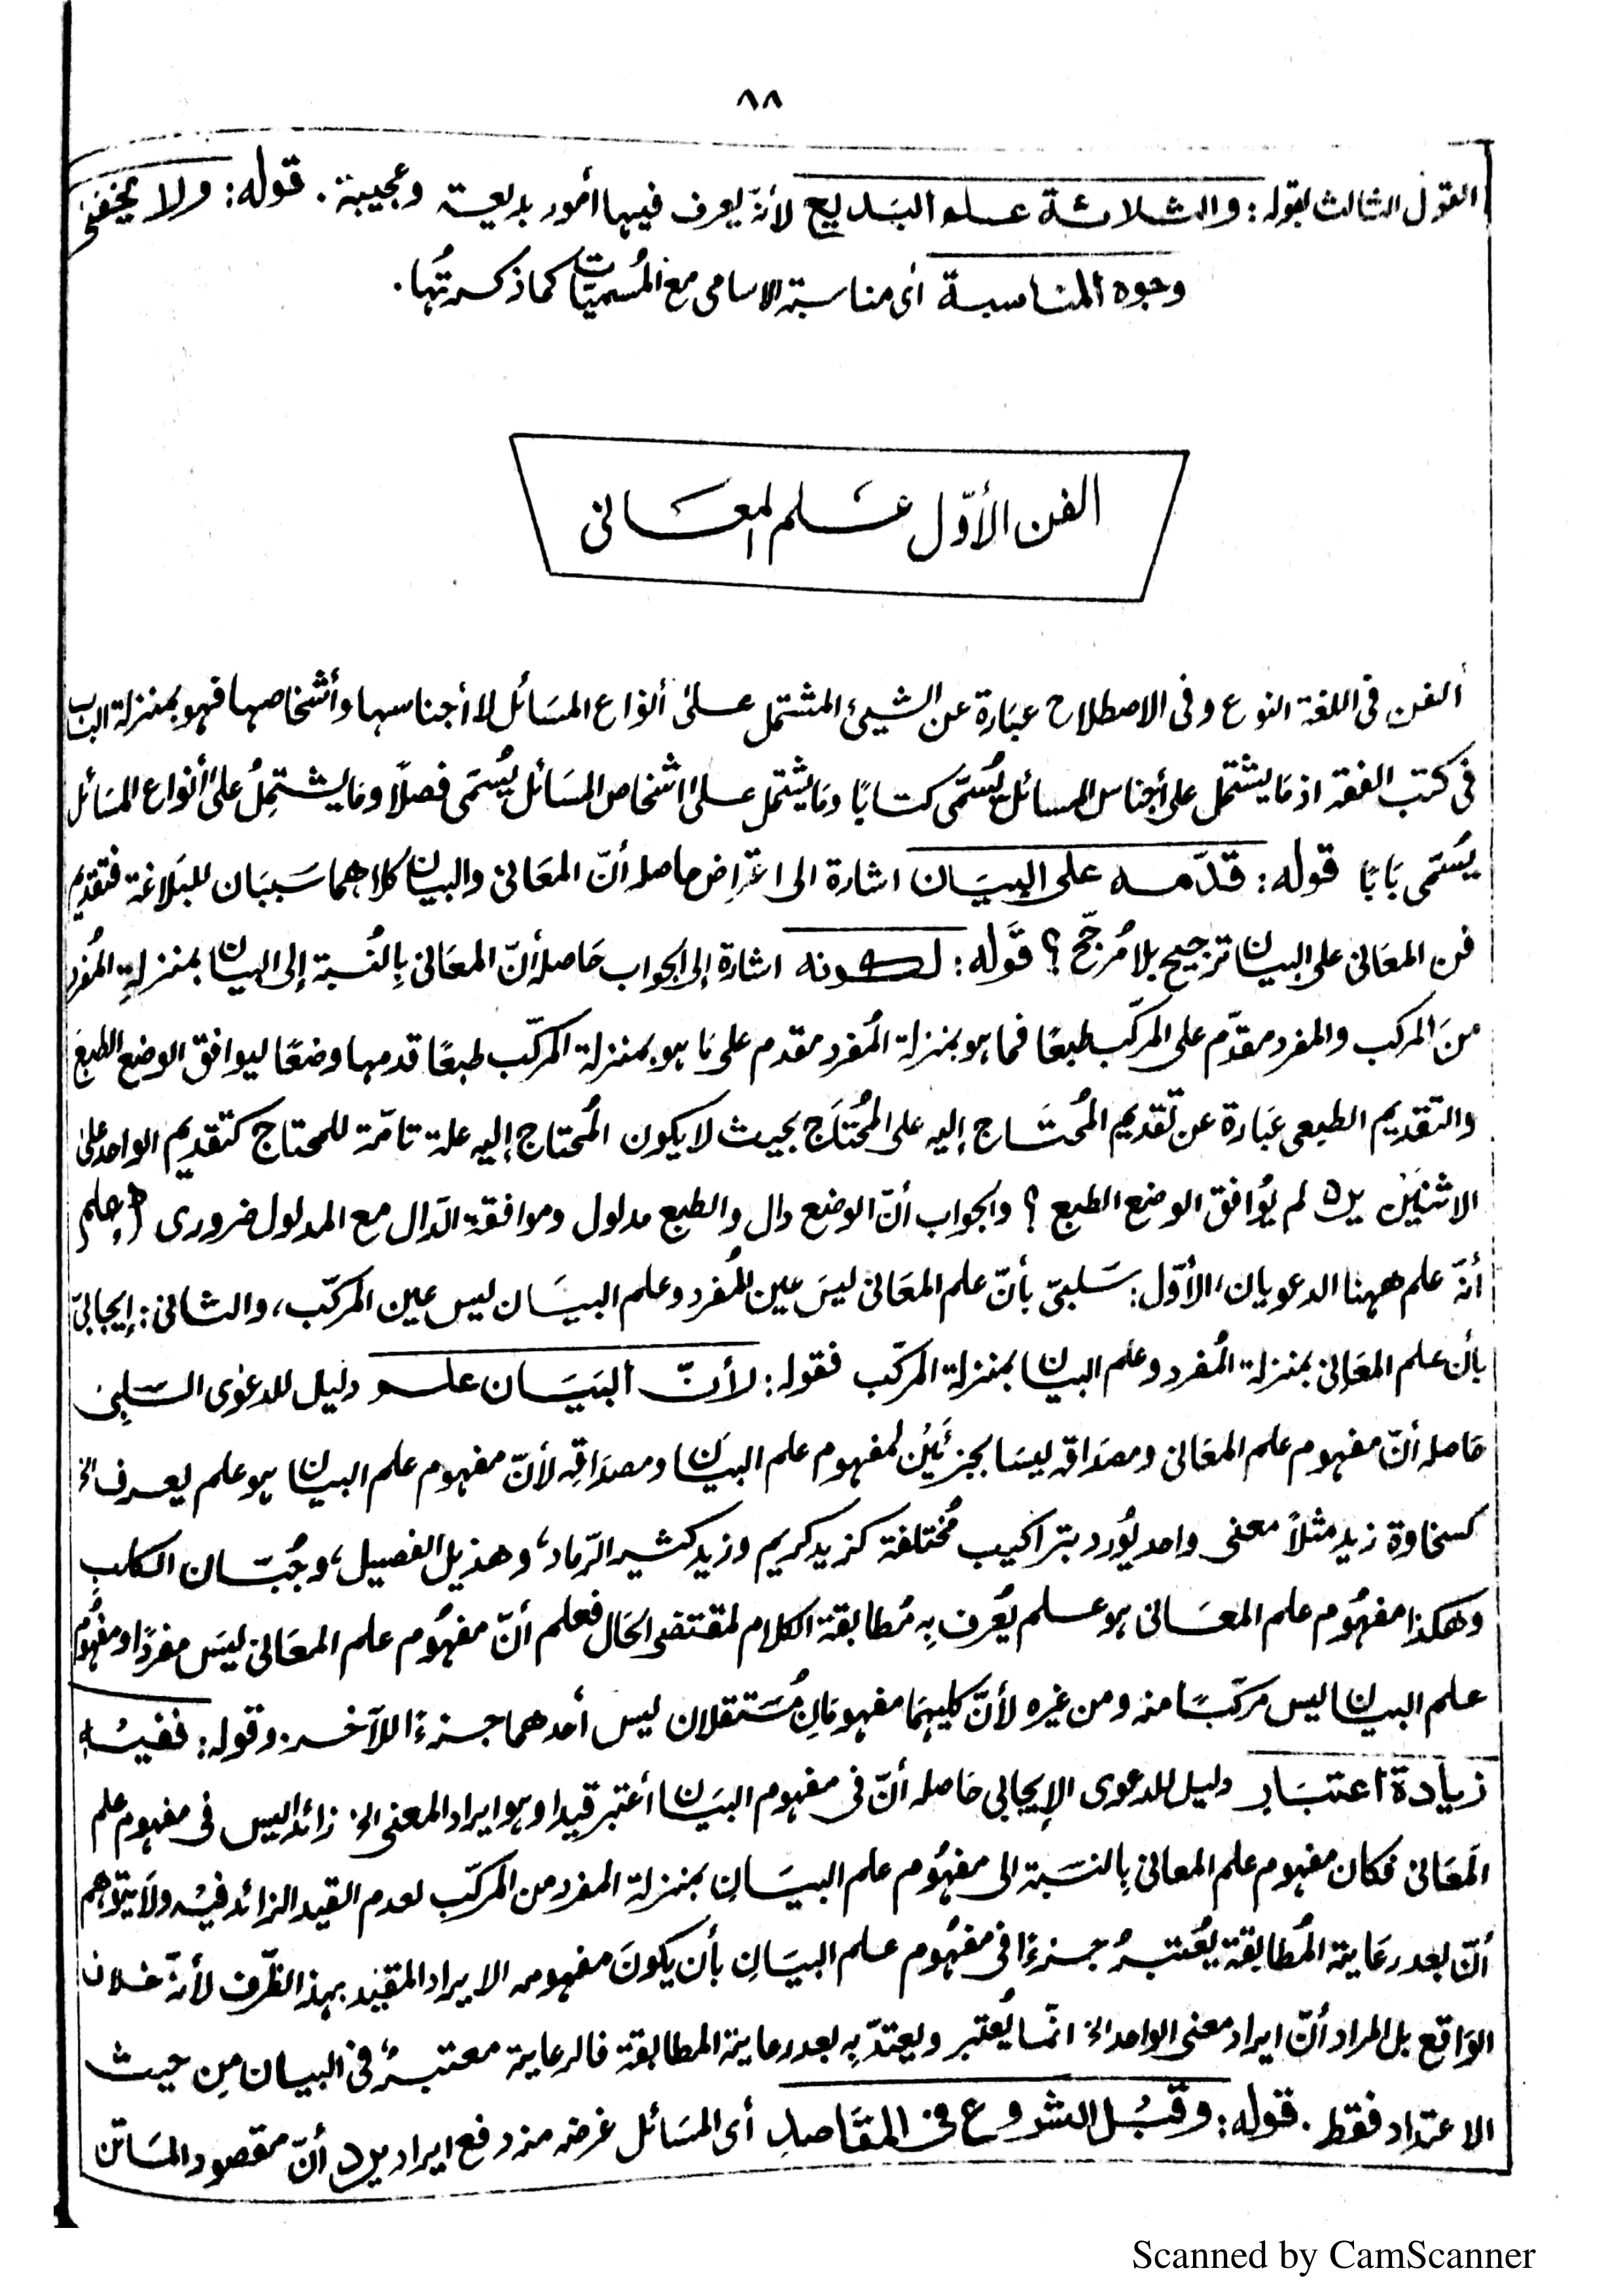 ٨٨
القول الثالث بقوله: والثلاثة علم البديع لأنه يعرف فيها أمور بديعة وعجيبة. قوله: ولا يخفى
وجوه المناسبة أى مناسبة الاسامى مع المُسميّات كما ذكرتُها.
الفن الأوّل عَلم المعَانى
ألفن فى اللغة النوع وفى الاصطلاح عبَارة عن الشيئ المشتمل على أنواع المسَائل لا أجناسها وأشخاصها فهو بمنزلة الباب
فى كتب الفقه اذ مَا يشتمل على أجناس المسائل يُسمّى كتابًا ومَا يشتمل على اشخاص المسَائل يُسمّى فصلًا ومَا يشتمِلُ على أنواع المسَائل
يسُمّى بَابًا قوله: قدّمه على البيَان اشارة الى اعتراض حاصله أنّ المعَانى والبيان كلاهما سَببَان للبَلاغة فتقديم
فن المعَانى على البيان ترجيح بلا مُرجّح؟ قوله: لكونه اشارة إلى الجواب حَاصله أنّ المعَانى بِالنُسبة إلى البيان بمنزلةِ المُفرد
منَ المركب والمفرد مقدّم على المركّب طبعًا فما هو بمنزلة المُفرد مقدم على مَا هو بمنزلة المركّب طبعًا قدمها وضعًا ليوافق الوضع الطبع
والتقديم الطبعى عبَارة عن تقديم المُحتَاج إليه على المُحتَاج بحيث لا يكون المُحتاج إليه علة تامّة للمحتاج كتقديم الواحد على
الاثنَيْن يرد لم يُوافق الوضع الطبع؟ والجواب أنّ الوضع دال والطبع مدلول وموافقة الدّال مع المدلول ضرورى (إعلم)
أنّه علم ههنا الدعويان، الأوّل: سَلبىّ بأنّ علم المعَانى ليسَ عين المُفرد وعلم البيَان ليس عين المركّب، والثانى: إيجابىّ
بأن علم المعَانى بمنزلة المُفرد وعلم البيان بمنزلة المركّب فقوله: لأنّ البَيَان علم دليل للدعوٰى السّلبِى
حَاصله أنّ مفهوم علم المعَانى ومصدَاقه ليسَا بجزئَيْن لمفهوم علم البيَان ومصدَاقِه لأنّ مفهوم علم البيان هو علم يعرف الخ
كسخاوة زيد مثلاً معنى واحد يُورد بتراكيب مُختلفة كزيد كريم وزيد كثير الرّماد، وهذيل الفصيل، وجُبّان الكلبِ
وهكذا مفهُوم علم المعَانى هو علم يُعرف بِه مُطابقة الكلام لمقتضى الحَال فعلم أنّ مفهُوم علم المعَانى ليسَ مفردًا ومفهُوم
علم البيان ليس مركّبًا منه ومن غيره لأنّ كليهمَا مفهومَانِ مُستقلان ليس أحدهما جزءًا للآخر. وقوله: ففيْه
زيادة اعتبَار دليل للدعوى الإيجابى حَاصله أنّ فى مفهوم البيَان أعتبر قيدا وهو ايراد المعنى الخ زائدا ليس فى مفهوم علم
المعَانى فكان مفهوم علم المعانى بِالنسَبة الى مفهُوم علم البيَانِ بمنزلة المفرد من المركّب لعدم القيد الزائد فيْه ولَا يتوَّهم
أنّ بعد رعَاية المُطابقة يعُتبرُ جزءًا فى مفهُوم علم البيَانِ بأن يكونَ مفهومه الايراد المقيّد بهذ الظّرف لأنه خلاف
الوَاقع بل المراد أنّ ايراد معنى الواحد الخ انّما يُعتبر ويعتدّ بِه بعد رعاية المطابقة فالرعاية معتبرٌ فى البيان مِن حيث
الاعتداد فقط. قوله: وقبْل الشروع فى المقَاصدِ أى المسَائل غرضه منه دفع ايراد يرد أنّ مقصود المَاتن
Scanned by CamScanner